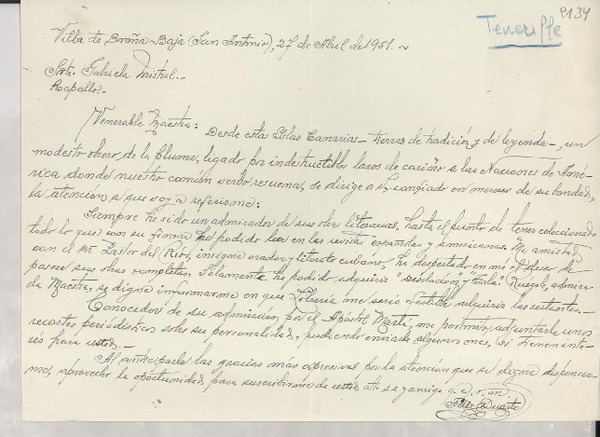 P134
Teneriffe
Villa de Breña-Baja (San Antonio), 27 de Abril de 1951.~
Srta. Gabriela Mistral.-
Rapallo.-
Venerable Maestra: Desde estas Islas Canarias - tierras de tradición y de leyenda -, un
modesto obrero de la pluma, ligado por indestructibles lazos de cariño a las Naciones de Amé-
rica, donde nuestro común verbo resuena, se dirige a V., confiado en merecer de su bondad,
la atención a que voy a referirme:
Siempre he sido un admirador de sus obras literarias, hasta el punto de tener coleccionado
todo lo que con su firma he podido leer en las revistas españolas y americanas. Mi amistad
con el Dr. Pastor del Río, insigne orador y literato cubano, ha despertado en mí el deseo de
poseer sus obras completas. Solamente he podido adquirir "Desolación" y "Tala". Ruego, admira-
da Maestra, se digne informarme en qué Librería me sería factible adquirir las restantes.-
Conocedor de su admiración por el Apóstol Martí, me permito adjuntarle unos
recortes periodísticos sobre su personalidad, pudiendo enviarle algunos más, si tienen inte-
rés para usted.-
Al anticiparle las gracias más expresivas por la atención que se digne dispensar-
me, aprovecho la oportunidad para suscribirme de usted atto. s.s. y amigo q.
Félix Duarte